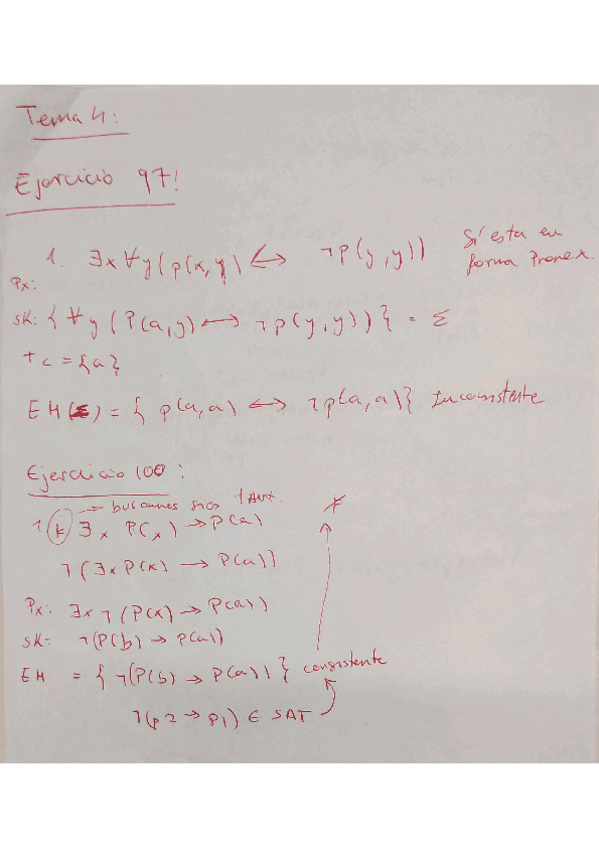 Tema 4:
Ejercicio 97!
1. ∃x ∀y (p(x,y) ↔ ¬p(y,y)) Sí esta en
forma Prenex.
Px:
SK: { ∀y (P(a,y) ↔ ¬p(y,y)) } = Σ
Tc = {a}
EH(Σ) = { p(a,a) ↔ ¬p(a,a)} Inconsistente
Ejercicio 100:
→ buscamos si es
1 ⊨ ∃x P(x) → P(a) ⊭
¬(∃x P(x) → P(a))
Px: ∃x ¬(P(x) → P(a))
SK: ¬(P(b) → P(a))
EH = { ¬(P(b) → P(a)) } consistente
¬(p2 → p1) ∈ SAT